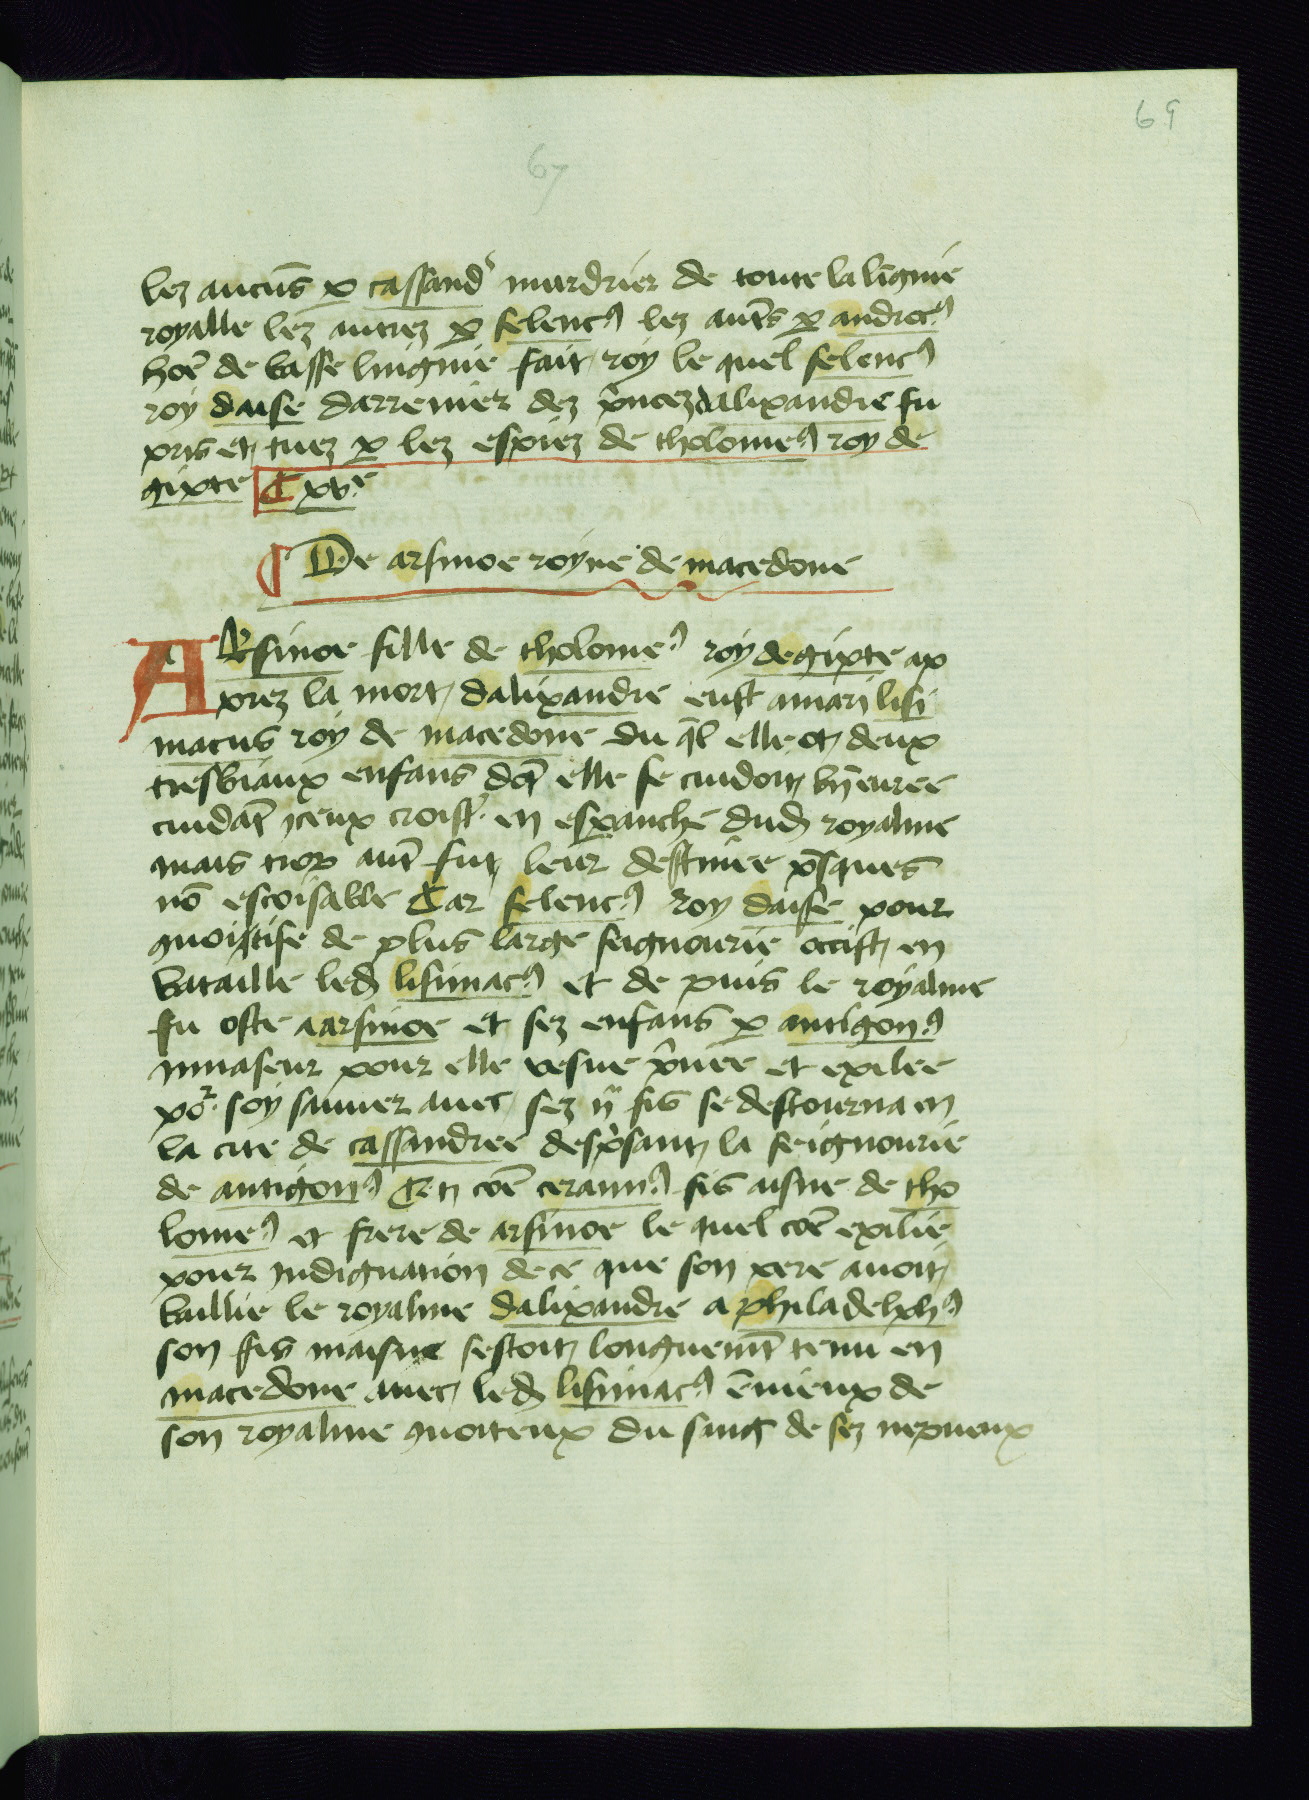 69
67
lez aucũs ꝑ cassand' murdrier de toute la lignie
royalle lez autrez ꝑ seleucꝰ lez aut̃s ꝑ androcꝰ
hõe de basse lingnie fait roy le quel seleucꝰ
roy daise darrenier dez p̃ncez dalixandre fu
pris et tuez ꝑ lez espiez de tholomeꝰ roy de
gipte ¶ xv.e
¶ De arsinoe royne de macedone
ARsinoe fille de tholomeꝰ roy degipte ap
prez la mort dalixandre eust a mari lisi
macus roy de macedone du q̃l elle ot deux
tresbiaux enfans dõt elle se cuidoit bñ euree
cuidãt yceux croist' en esperance dud royalme
mais trop aut̃ fut leur destinee p̃sques
nõ escoisable Car seleucꝰ roy daise pour
quoistise de plus large seignourie occist en
bataille led lisimacꝰ et de puis le royalme
fu oste a arsinoe et sez enfans ꝑ antigonꝰ
inuaseur pour elle vesue p̃uee et exilee
poʳ soy sauuer auec sez ij fis se destourna en
la cite de cassandree desp̃sant la seignourie
de antigonꝰ Et cõe ceraunꝰ fis aisne de tho
lomeꝰ et frere de arsinoe le quel cõe exilie
pour indignation de ce que son pere auoit
baillie le royalme dalixandre a philadelphꝰ
son fis maisne sestoit longuemt̃ tenu en
macedone auec led lisimacꝰ ẽuieux de
son royalme quoiteux du sang de sez nepueux